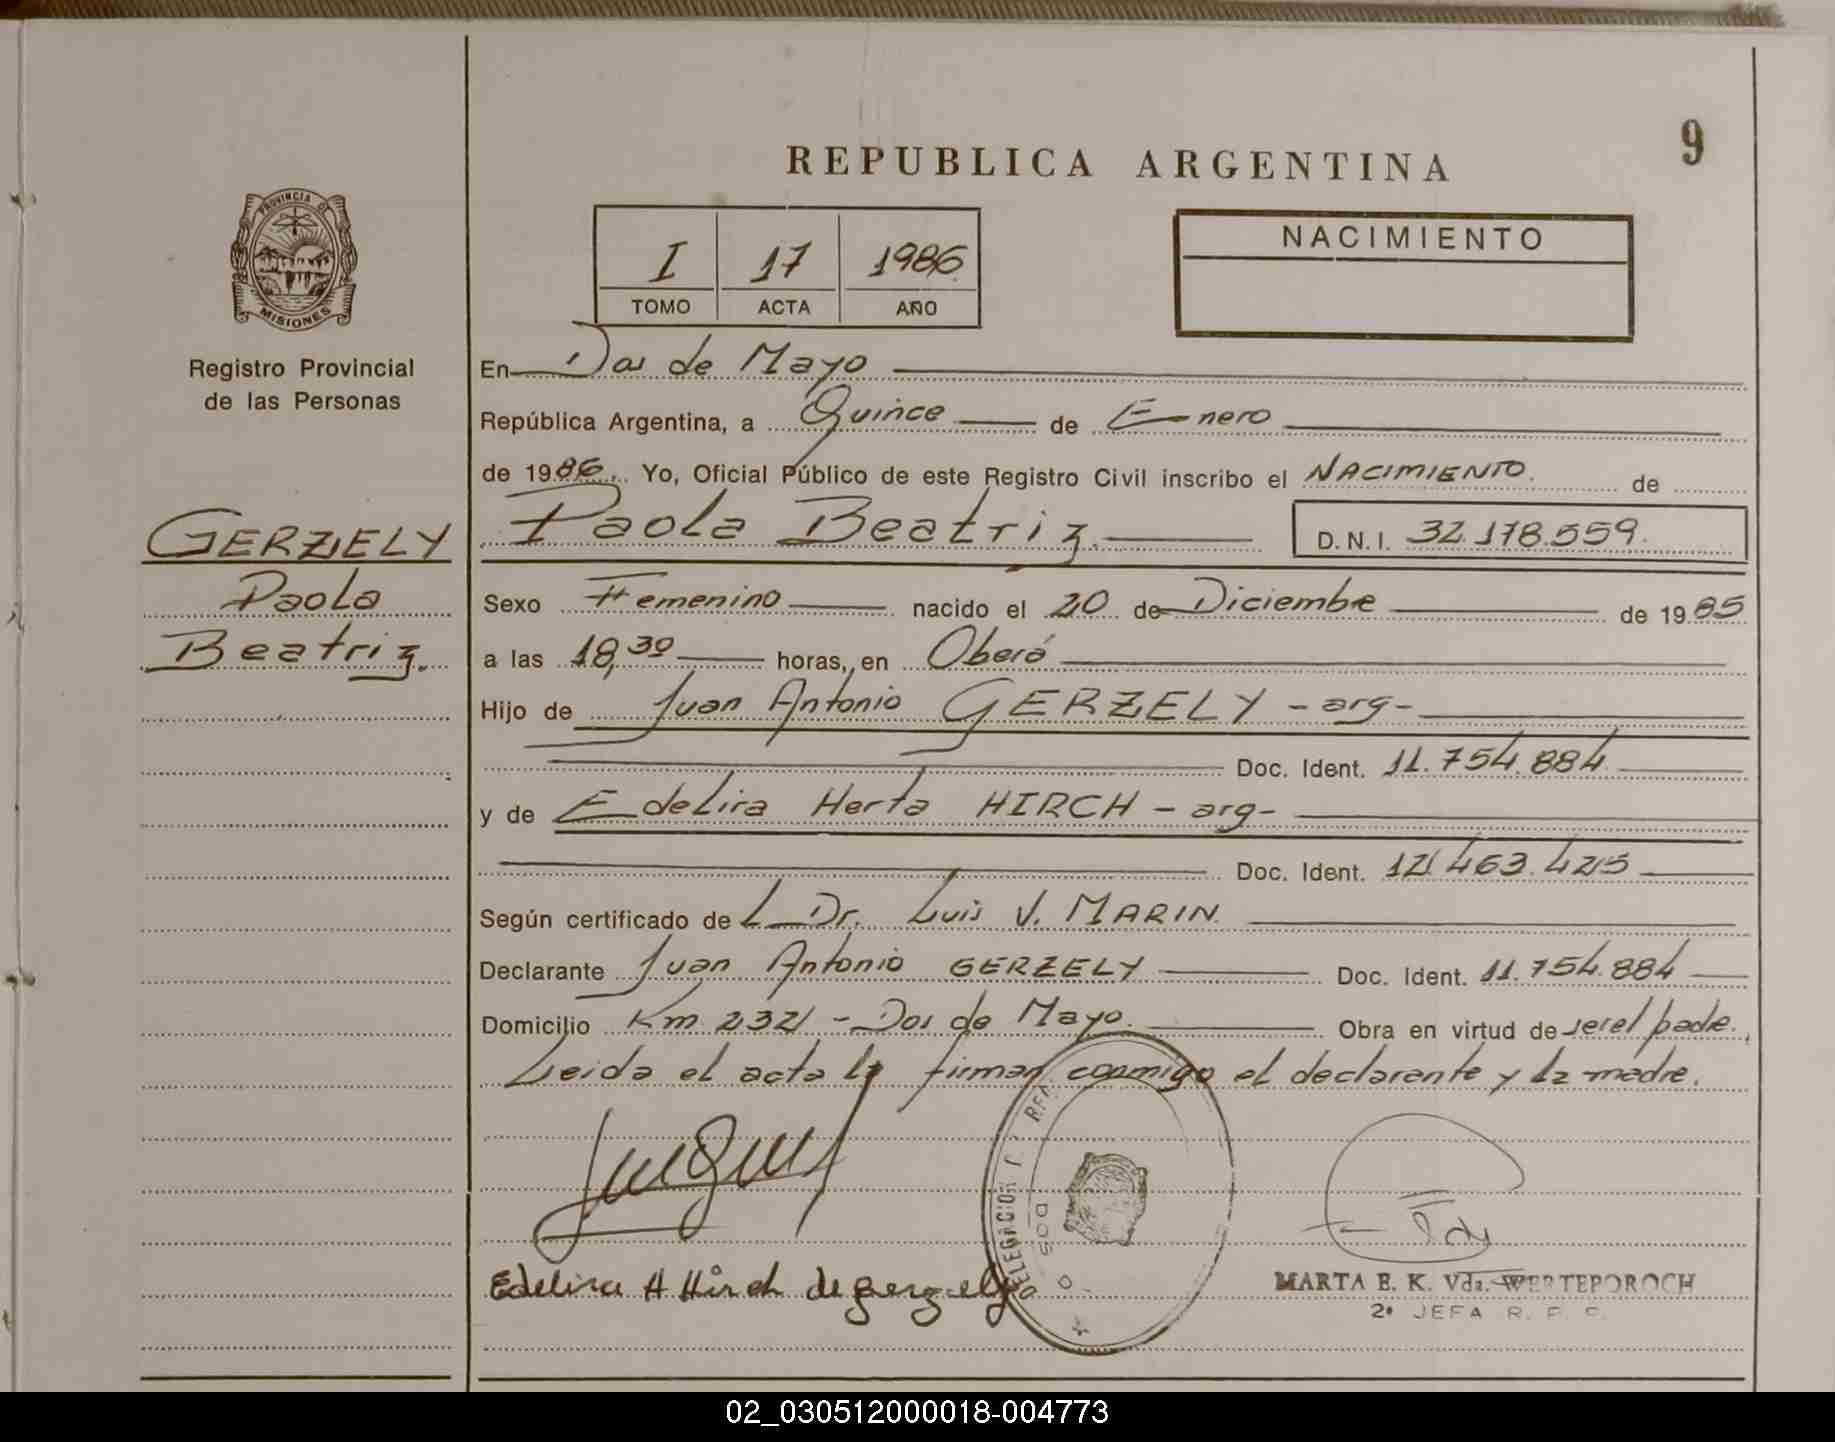 REPUBLICA ARGENTINA
9
PROVINCIA DE
MISIONES
Registro Provincial
de las Personas
GERZELY
Paola
Beatriz.
I 17 1986
TOMO ACTA AÑO
NACIMIENTO
En Dos de Mayo
República Argentina, a Quince de Enero
de 1986. Yo, Oficial Público de este Registro Civil inscribo el NACIMIENTO. de
Paola Beatriz. D.N.I. 32.178.559.
Sexo Femenino nacido el 20 de Diciembre de 1985
a las 18,30 horas, en Oberá
Hijo de Juan Antonio GERZELY - arg-
Doc. Ident. 11.754.884
y de Edelira Herta HIRCH - arg-
Doc. Ident. 12.463.425
Según certificado de L Dr. Luis V. MARIN.
Declarante Juan Antonio GERZELY Doc. Ident. 11.754.884
Domicilio Km 232 - Dos de Mayo. Obra en virtud de ser el padre.
Leida el acta la firman conmigo el declarante y la madre.
Edelira H Hirch de gerzely
DELEGACION
DOS
MARTA E. K. Vda. WERTEPOROCH
2ª JEFA R. P. P.
02_030512000018-004773